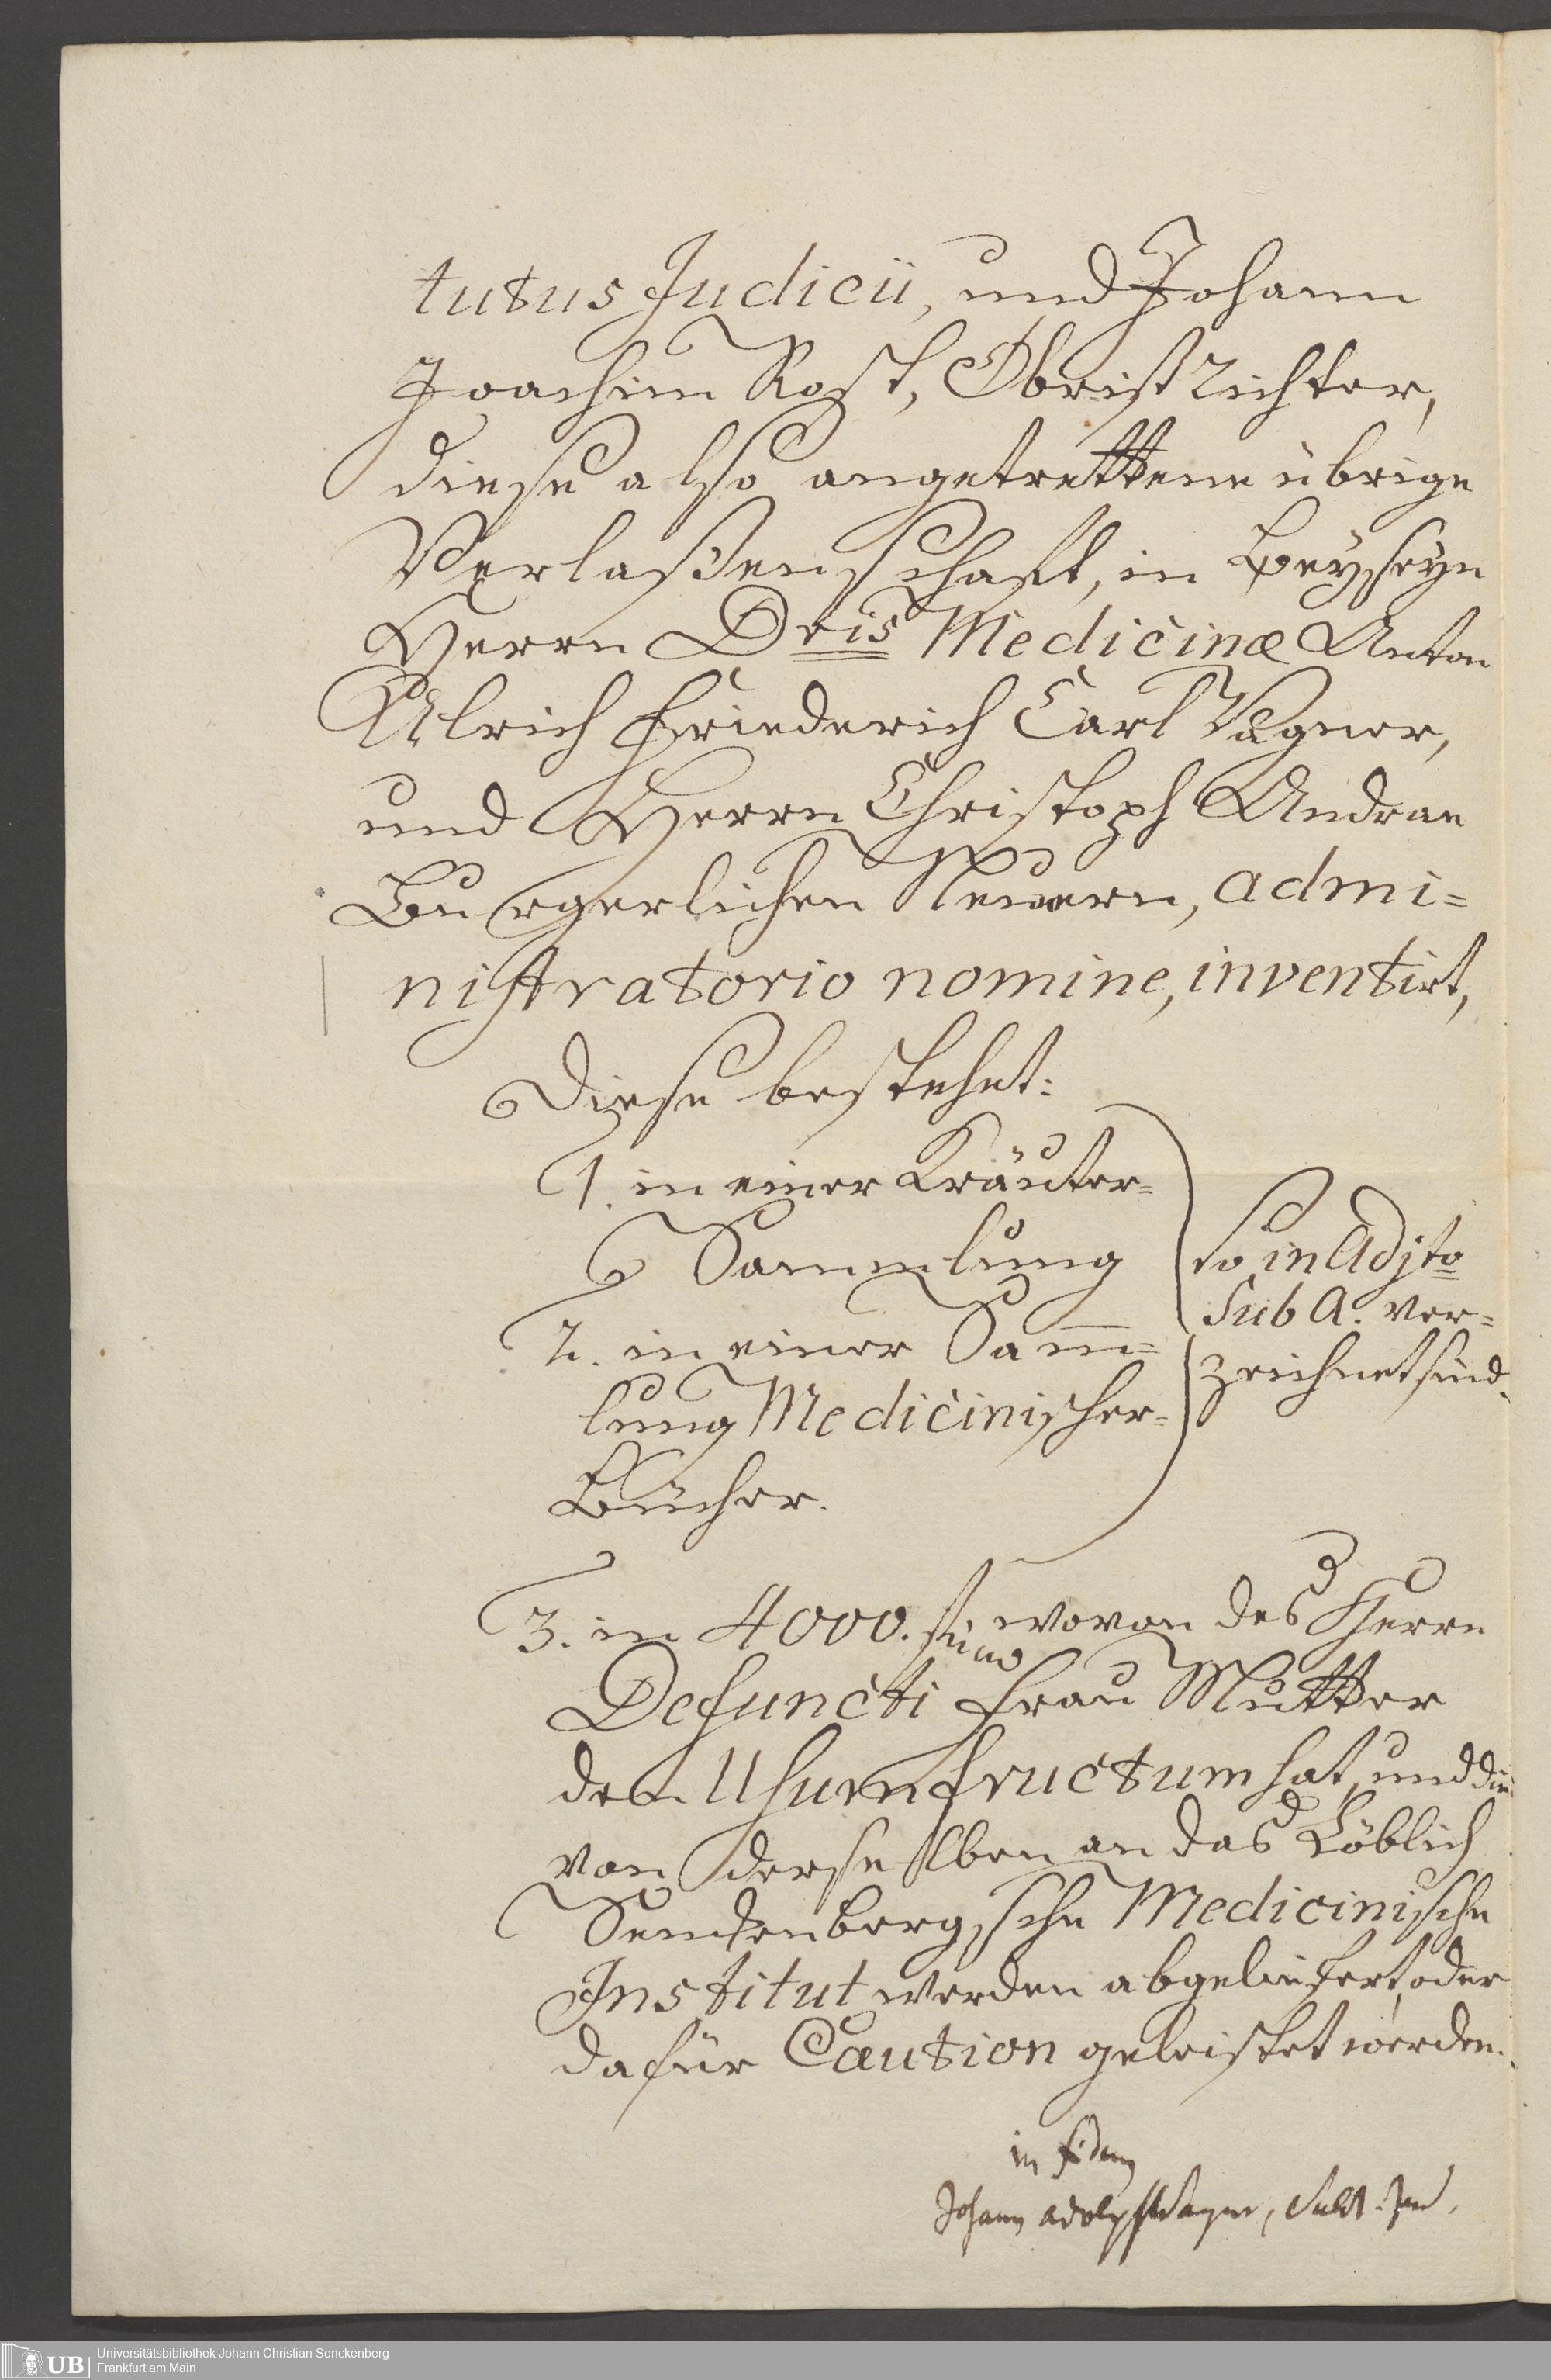 tutus Judicii, und Johann
Joachim Rost, Obrist Richter,
diese also angetrettene übrige
Verlaßenschaft, in Beyseyn
Herrn Dris Medicinæ Anton
Ulrich Friederich Carl Wagner,
und Herrn Christoph Andreae
Burgerlichen Neunern, admi=
nistratorio nomine, inventirt,
Diese bestehet:
1. in einer Kräuter=
Sammlung
2. in einer Sam̅=
lung Medicinischer=
Bücher.
so in Adjto
sub A. ver=
zeichnet sind.
3. in 4000. f. wovon des Herrn
Defuncti Frau Mutter
den Usumfructum hat, und die
von derselben an das Löblich
Senckenbergische Medicinische
Institut werden abgeliefert, oder
dafür Caution geleistet werden.
in fidem
Johann Adolph Wagner, Subst. Jud.
Universitätsbibliothek Johann Christian Senckenberg
UB
Frankfurt am Main